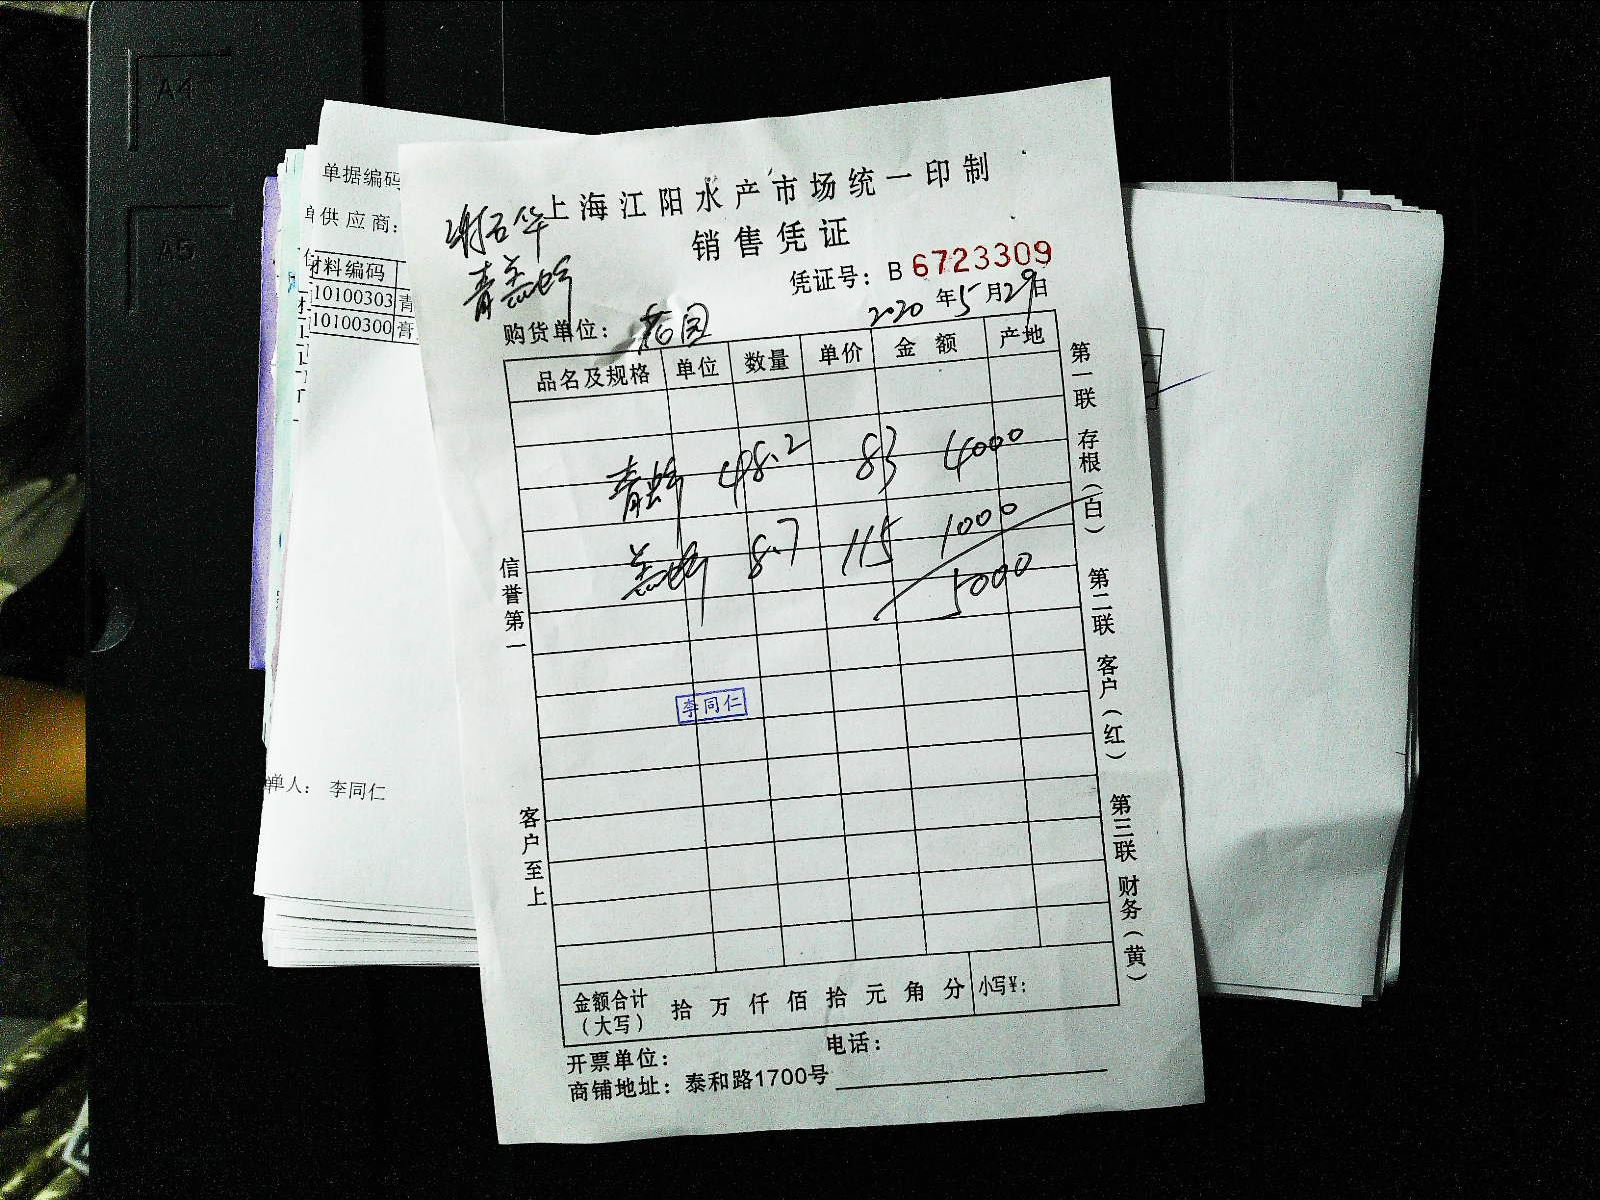 A4
A5
单据编码
供应商：
材料编码
10100303 青
10100300 膏
单人： 李同仁
上海江阳水产市场统一印制
销售凭证
凭证号：B 6723309
2020年5月29日
购货单位：
品名及规格 单位 数量 单价 金额 产地
青虾 48.2 83 4000
8.7 115 1000
5000
李同仁
信誉第一
客户至上
第一联 存根（白） 第二联 客户（红） 第三联 财务（黄）
金额合计（大写） 拾 万 仟 佰 拾 元 角 分 小写¥：
开票单位： 电话：
商铺地址：泰和路1700号